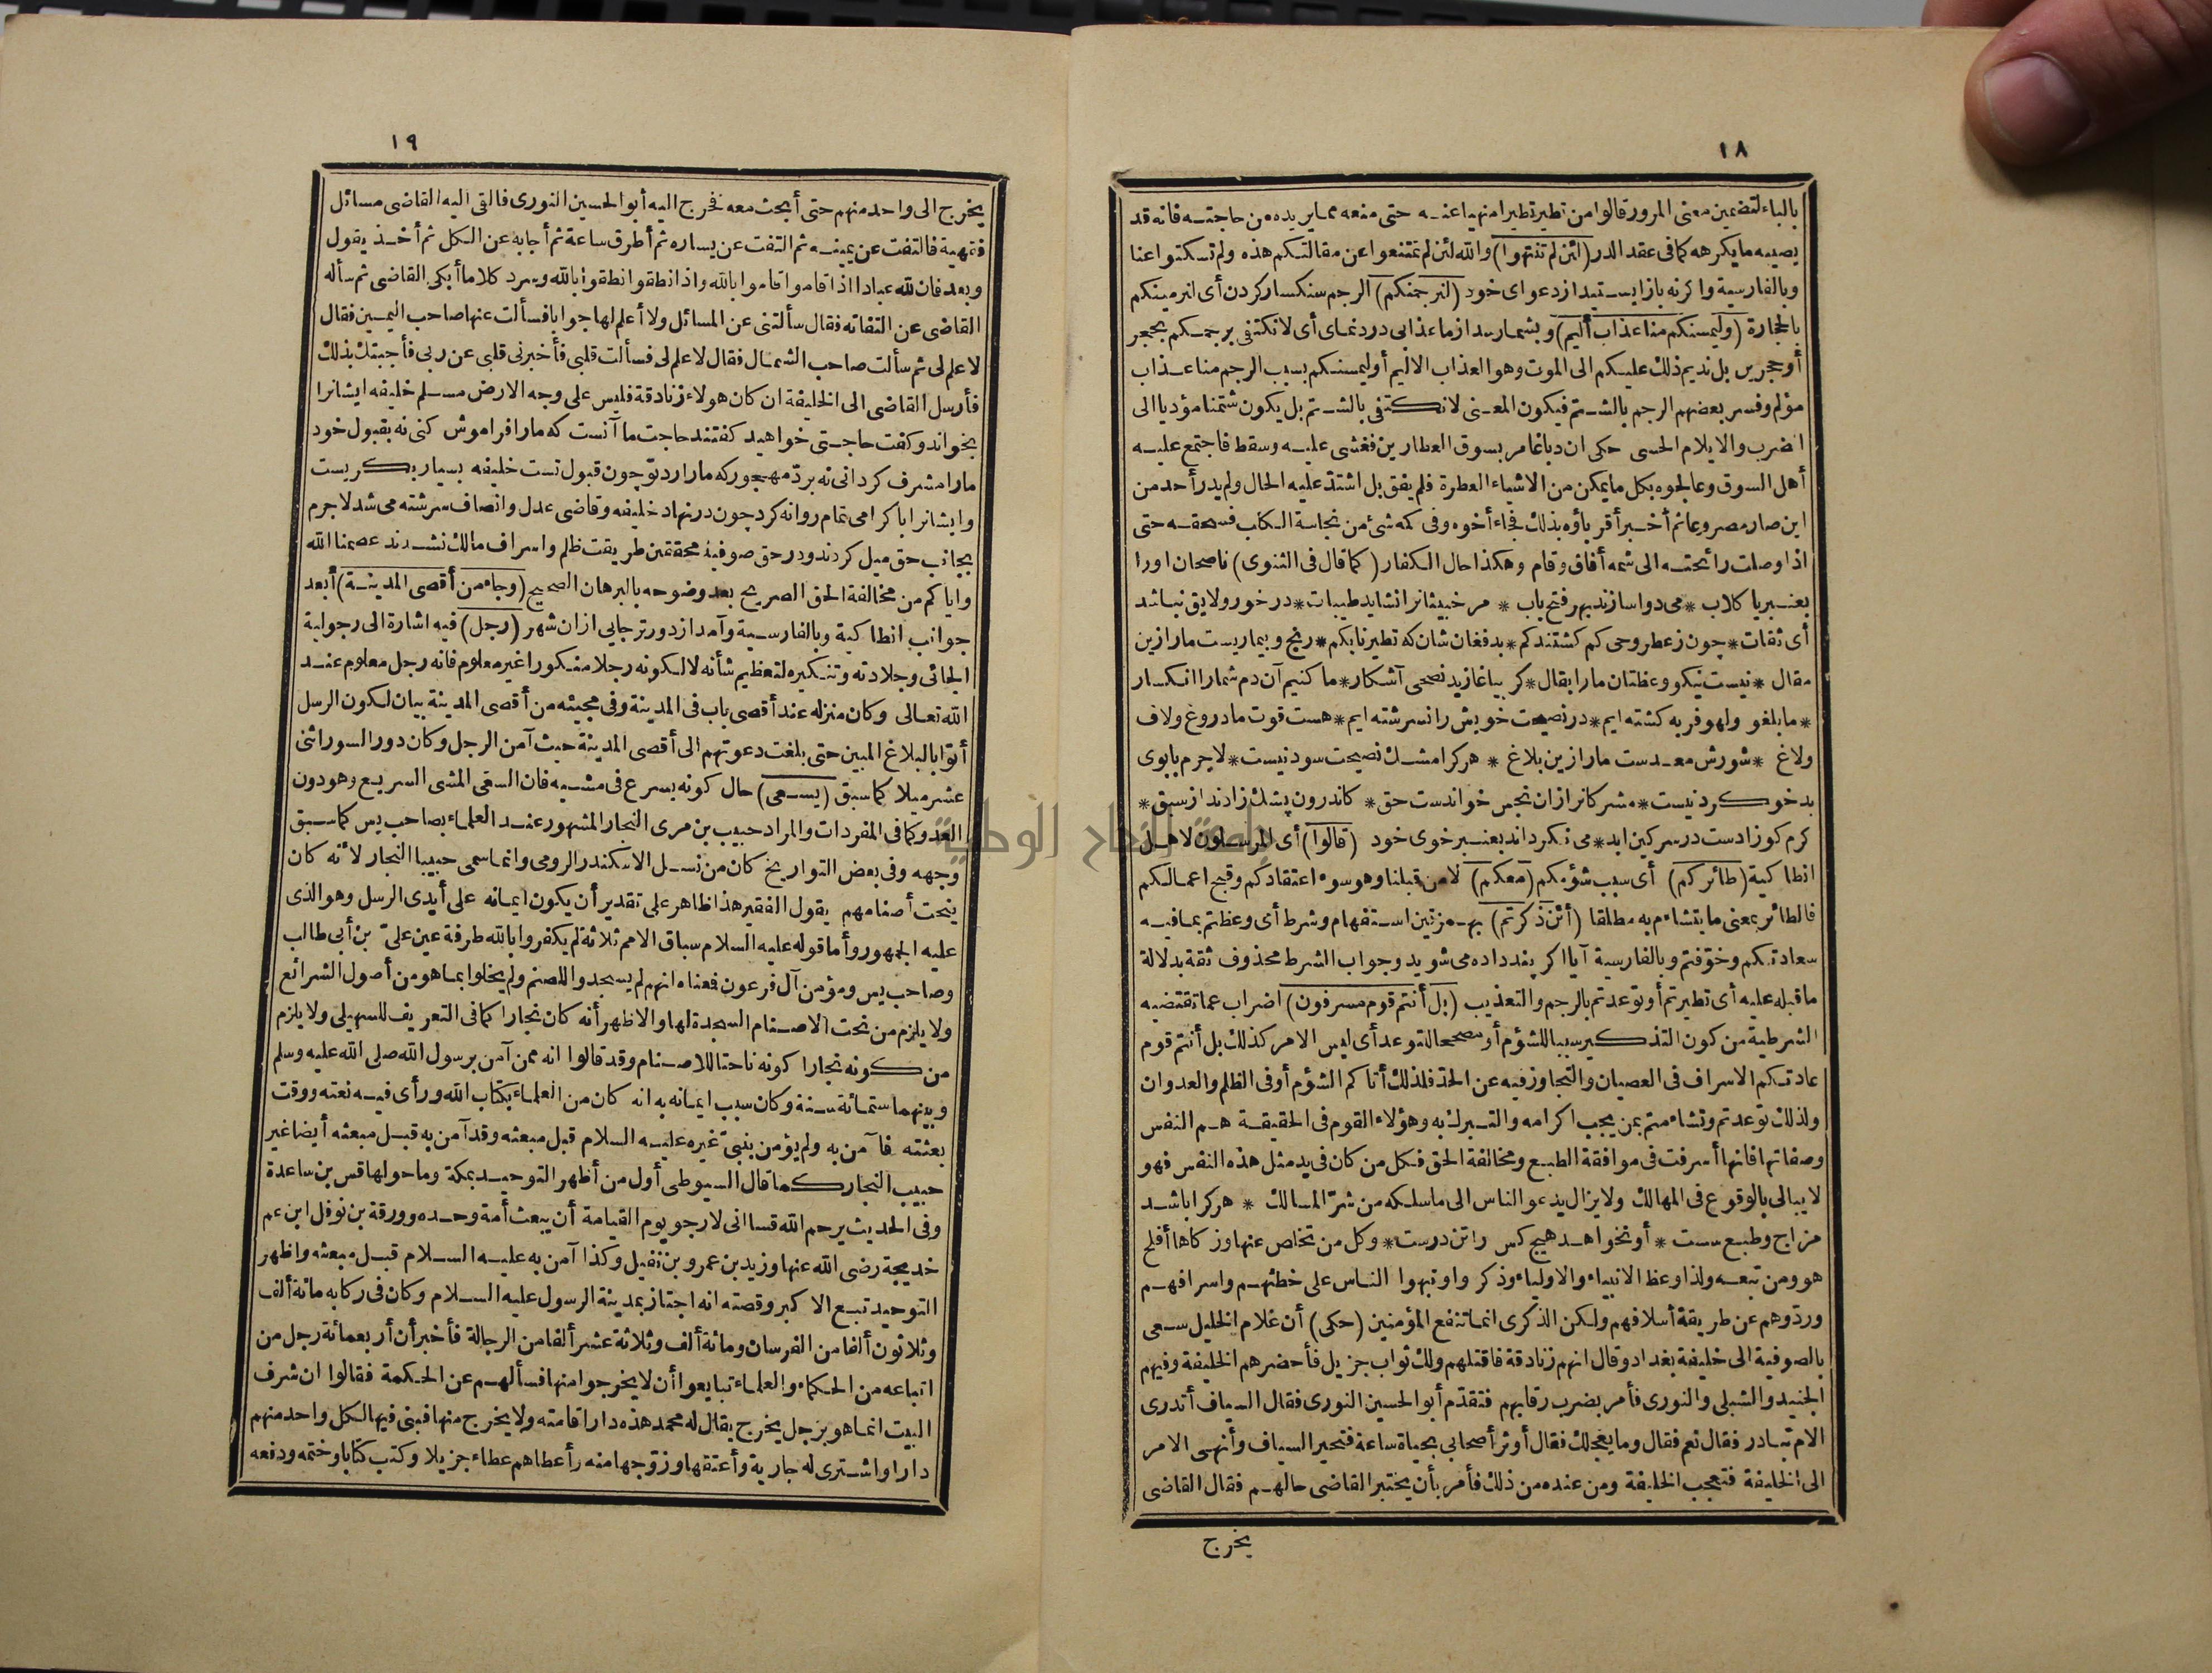 ١٨
بالباء لتضمين معنى المرور قالوا من تطير تطيرا منهيا عنه حتى منعه مما يريده من حاجته فانه قد
يصيبه ما يكرهه كما فى عقد الدرر (لئن لم تنتهوا) والله لئن لم تمتنعوا عن مقالتكم هذه ولم تسكتوا عنا
وبالفارسية واكرنه باز ايستيد از دعواى خود (لنرجمنكم) الرجم سنكسار كردن أى لنرمينكم
بالحجارة (وليمسنكم منا عذاب أليم) وبشمار سد از ما عذابى دردنماى أى لا نكتفى برجمكم بحجر
أو حجرين بل نديم ذلك عليكم الى الموت وهو العذاب الاليم أو ليمسنكم بسبب الرجم منا عذاب
مؤلم وفسر بعضهم الرجم بالشتم فيكون المعنى لا نكتفى بالشتم بل يكون شتمنا مؤديا الى
الضرب والايلام الحسى حكى ان دباغا مر بسوق العطارين فغشى عليه وسقط فاجتمع عليه
أهل السوق وعالجوه بكل ما يمكن من الاشياء العطرة فلم يفق بل اشتد عليه الحال ولم يدر أحد من
اين صار مصروعا ثم أخبر أقرباؤه بذلك فجاء أخوه وفى كمه شئ من نجاسة الكلب فسحقه حتى
اذا وصلت رائحته الى شمه أفاق وقام وهكذا حال الكفار (كما قال فى المثنوى) ناصحان اورا
بعنبر يا كلاب * مى دوا سازند بهر فتح باب * مر خبيثانرا نشايد طيبات * در خور ولايق نباشد
أى ثقات * چون ز عطر وحى كم كشتند كم * بد فغان شان كه تطيرنا بكم * رنج وبيماريست مارا زين
مقال * نيست نيكو وعظتان مارا بفال * كر بياغازيد نصحى آشكار * ما كنيم آن دم شمارا انكسار
* ما بلغو ولهو فربه كشته ايم * در نصيحت خويش را نسرشته ايم * هست قوت ما دروغ ولاف
ولاغ * شورش معدست مارا زين بلاغ * هركرا مشك نصيحت سود نيست * لاجرم با بوى
بد خو كردنيست * مشركانرا زان نجس خواندست حق * كاندرون پشك زادند از سبق *
كرم كو زادست در سركين ابد * مى نكرداند بعنبر خوى خود (قالوا) أى المرسلون لاهل
انطاكية (طائركم) أى سبب شؤمكم (معكم) لا من قبلنا وهو سوء اعتقادكم وقبح اعمالكم
فالطائر بمعنى ما يتشاءم به مطلقا (أئن ذكرتم) بهمزتين استفهام وشرط أى وعظتم بما فيه
سعادتكم وخوفتم وبالفارسية آيا اكر پند داده مى شويد وجواب الشرط محذوف ثقة بدلالة
ما قبله عليه أى تطيرتم أو توعدتم بالرجم والتعذيب (بل أنتم قوم مسرفون) اضراب عما تقتضيه
الشرطية من كون التذكير سببا للشؤم أو مصححا للتوعد أى ليس الامر كذلك بل أنتم قوم
عادتكم الاسراف فى العصيان والتجاوز فيه عن الحد فلذلك أتاكم الشؤم أو فى الظلم والعدوان
ولذلك توعدتم وتشاءمتم بمن يجب اكرامه والتبرك به وهؤلاء القوم فى الحقيقة هم النفس
وصفاتها فانها أسرفت فى موافقة الطبع ومخالفة الحق فكل من كان فى يد مثل هذه النفس فهو
لا يبالى بالوقوع فى المهالك ولا يزال يدعو الناس الى ما سلكه من شر المسالك * هركرا باشد
مزاج وطبع سست * او نخواهد هيچ كس را تن درست * وكل من تخلص عنها وزكاها أفلح
هو ومن تبعه ولذا وعظ الانبياء والاولياء وذكروا ونبهوا الناس على خطئهم واسرافهم
وردوهم عن طريقة أسلافهم ولكن الذكرى انما تنفع المؤمنين (حكى) أن غلام الخليل سعى
بالصوفية الى خليفة بغداد وقال انهم زنادقة فاقتلهم ولك ثواب جزيل فأحضرهم الخليفة وفيهم
الجنيد والشبلى والنورى فأمر بضرب رقابهم فتقدم أبو الحسين النورى فقال السياف أتدرى
الام تبادر فقال نعم فقال وما يعجلك فقال أوثر أصحابى بحياة ساعة فتحير السياف وأنهى الامر
الى الخليفة فتعجب الخليفة ومن عنده من ذلك فأمر بأن يختبر القاضى حالهم فقال القاضى
يخرج
١٩
يخرج الى واحد منهم حتى أبحث معه فخرج اليه أبو الحسين النورى فالقى اليه القاضى مسائل
فقهية فالتفت عن يمينه ثم التفت عن يساره ثم أطرق ساعة ثم أجابه عن الكل ثم أخذ يقول
وبعد فان لله عبادا اذا قاموا قاموا بالله واذا نطقوا نطقوا بالله وسرد كلاما أبكى القاضى ثم سأله
القاضى عن التفاته فقال سألتنى عن المسائل ولا أعلم لها جوابا فسألت عنها صاحب اليمين فقال
لا علم لى ثم سألت صاحب الشمال فقال لا علم لى فسألت قلبى فأخبرنى قلبى عن ربى فأجبتك بذلك
فأرسل القاضى الى الخليفة ان كان هولاء زنادقة فليس على وجه الارض مسلم خليفه ايشانرا
بخواند وكفت حاجتى خواهيد كفتند حاجت ما آنست كه مارا فراموش كنى نه بقبول خود
مارا مشرف كردانى نه برد مهجور كه مارا رد تو چون قبول تست خليفه بسيار بكريست
وايشانرا با كرامى تمام روانه كرد چون در نهاد خليفه وقاضى عدل وانصاف سرشته مى شد لاجرم
بجانب حق ميل كردند ودر حق صوفيۀ محققين طريقت ظلم واسراف مالك نشدند عصمنا الله
واياكم من مخالفة الحق الصريح بعد وضوحه بالبرهان الصحيح (وجاء من أقصى المدينة) أبعد
جوانب انطاكية وبالفارسية وآمد از دورتر جايى ازان شهر (رجل) فيه اشارة الى رجولية
الجائى وجلادته وتنكيره لتعظيم شأنه لا لكونه رجلا منكورا غير معلوم فانه رجل معلوم عند
الله تعالى وكان منزله عند أقصى باب فى المدينة وفى مجيئه من أقصى المدينة بيان لكون الرسل
أتوا بالبلاغ المبين حتى بلغت دعوتهم الى أقصى المدينة حيث آمن الرجل وكان دور السور اثنى
عشر ميلا كما سبق (يسعى) حال كونه يسرع فى مشيه فان السعى المشى السريع وهو دون
العدو كما فى المفردات والمراد حبيب بن مرى النجار المشهور عند العلماء بصاحب يس كما سبق
وجهه وفى بعض التواريخ كان من نسل الاسكندر الرومى وانما سمى حبيبا النجار لأنه كان
ينحت أصنامهم يقول الفقير هذا ظاهر على تقدير أن يكون ايمانه على أيدى الرسل وهو الذى
عليه الجمهور وأما قوله عليه السلام سباق الامم ثلاثة لم يكفروا بالله طرفة عين علىّ بن أبى طالب
وصاحب يس ومؤمن آل فرعون فمعناه انهم لم يسجدوا للصنم ولم يخلوا بما هو من أصول الشرائع
ولا يلزم من نحت الاصنام السجدة لها والاظهر أنه كان نجارا كما فى التعريف للسهيلى ولا يلزم
من كونه نجارا كونه ناحتا للاصنام وقد قالوا انه ممن آمن برسول الله صلى الله عليه وسلم
وبينهما ستمائة سنة وكان سبب ايمانه به انه كان من العلماء بكتاب الله ورأى فيه نعته ووقت
بعثته فآمن به ولم يؤمن بنبى غيره عليه السلام قبل مبعثه وقد آمن به قبل مبعثه أيضا غير
حبيب النجار كما قال السيوطى أول من أظهر التوحيد بمكة وما حولها قس بن ساعدة
وفى الحديث يرحم الله قسا انى لارجو يوم القيامة أن يبعث أمة وحده وورقة بن نوفل ابن عم
خديجة رضى الله عنها وزيد بن عمرو بن نفيل وكذا آمن به عليه السلام قبل مبعثه واظهر
التوحيد تبع الاكبر وقصته انه اجتاز بمدينة الرسول عليه السلام وكان فى ركابه مائة ألف
وثلاثون ألفا من الفرسان ومائة ألف وثلاثة عشر ألفا من الرجالة فأخبر أن أربعمائة رجل من
اتباعه من الحكماء والعلماء تبايعوا أن لا يخرجوا منها فسألهم عن الحكمة فقالوا ان شرف
البيت انما هو برجل يخرج يقال له محمد هذه دار اقامته ولا يخرج منها فبنى فيها لكل واحد منهم
دارا واشترى له جارية وأعتقها وزوجها منه وأعطاهم عطاء جزيلا وكتب كتابا وختمه ودفعه